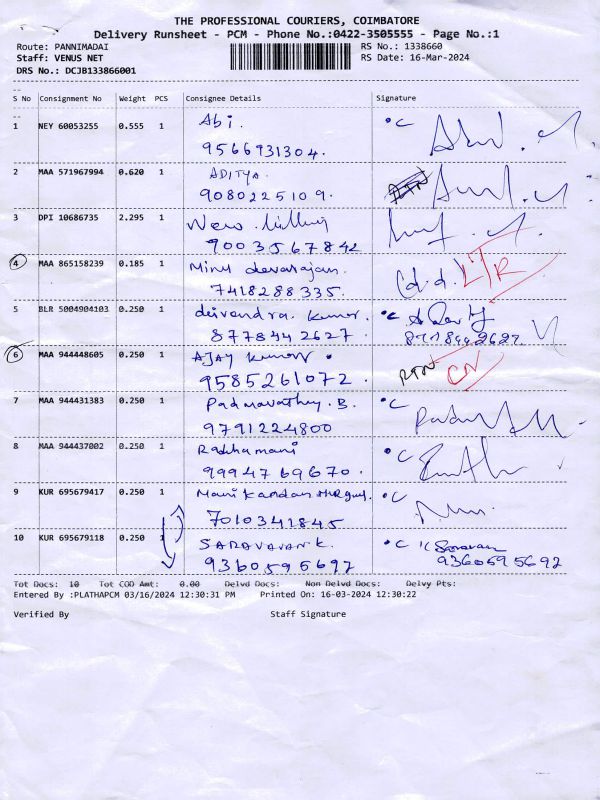 THE PROFESSIONAL COURIERS, COIMBATORE
Delivery Runsheet - PCM - Phone No.:0422-3505555 - Page No.:1
Route: PANNIMADAI
RS No.: 1338660
Staff: VENUS NET
RS Date: 16-Mar-2024
DRS No.: DCJB133866001
S No Consignment No Weight PCS Consignee Details Signature
1 NEY 60053255 0.555 1 Abi. °C
9566931304.
2 MAA 571967994 0.620 1 ADITYA. RTN
9080225109.
3 DPI 10686735 2.295 1 New
9003567842
4 MAA 865158239 0.185 1 Minu devarajan. Cd.d. LTR
7418288335.
5 BLR 5004904103 0.250 1 deivendra. kumar. °C
8778442627. 8778442627.
6 MAA 944448605 0.250 1 AJAY kumar RTN CN
9585261072.
7 MAA 944431383 0.250 1 Padmavathy. B. °C
9791224800
8 MAA 944437002 0.250 1 Radhamani °C
9994769670.
9 KUR 695679417 0.250 1 Mani kandan °C
7010341845
10 KUR 695679118 0.250 1 SARAVANAN K. °C K Saravan
9360595692 9360595692
Tot Docs: 10 Tot COD Amt: 0.00 Delvd Docs: Non Delvd Docs: Delvy Pts:
Entered By :PLATHAPCM 03/16/2024 12:30:31 PM Printed On: 16-03-2024 12:30:22
Verified By Staff Signature